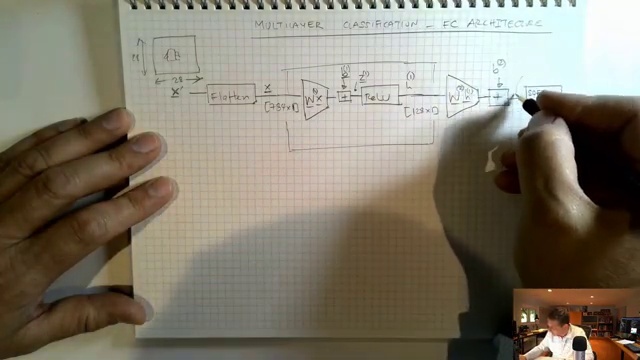 MULTILAYER CLASSIFICATION - FC ARCHITECTURE
28
28
X
Flatten
x
[784x1]
W⁽¹⁾x
b⁽¹⁾
+
z⁽¹⁾
ReLU
h⁽¹⁾
[128x1]
W⁽²⁾h⁽¹⁾
b⁽²⁾
+